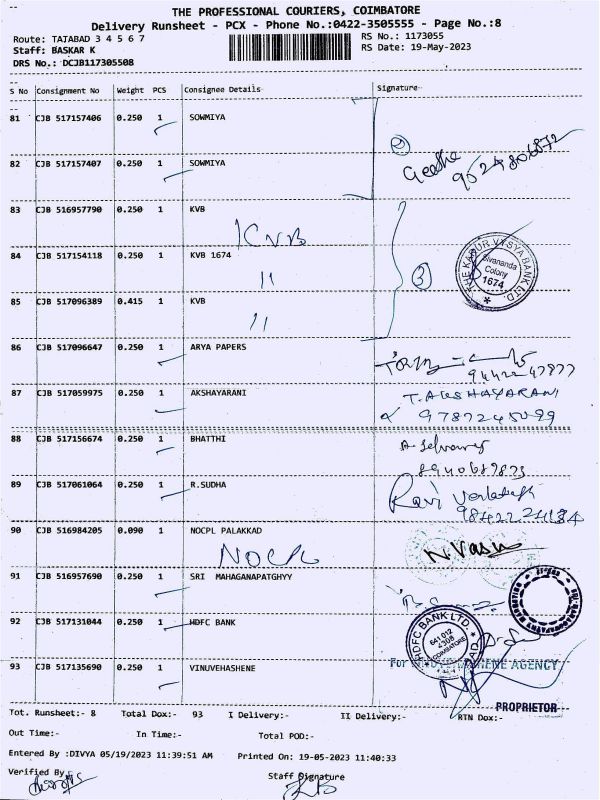 THE PROFESSIONAL COURIERS, COIMBATORE
Delivery Runsheet - PCX - Phone No.:0422-3505555 - Page No.:8
Route: TATABAD 3 4 5 6 7
RS No.: 1173055
Staff: BASKAR K
RS Date: 19-May-2023
DRS No.: DCJB117305508
S No Consignment No Weight PCS Consignee Details Signature
81 CJB 517157406 0.250 1 SOWMIYA
82 CJB 517157407 0.250 1 SOWMIYA
② Geetha
9524806872
83 CJB 516957790 0.250 1 KVB
KVB
84 CJB 517154118 0.250 1 KVB 1674
11
③
THE KARUR VYSYA BANK LTD.
Sivananda
Colony
1674
85 CJB 517096389 0.415 1 KVB
11
86 CJB 517096647 0.250 1 ARYA PAPERS
9442247877
87 CJB 517059975 0.250 1 AKSHAYARANI
T. AKSHAYARANI
9787245099
88 CJB 517156674 0.250 1 BHATTHI
8940689873
89 CJB 517061064 0.250 1 R.SUDHA
Ravi
90 CJB 516984205 0.090 1 NOCPL PALAKKAD
NOCPL
N. Vasu
91 CJB 516957690 0.250 1 SRI MAHAGANAPATGHYY
92 CJB 517131044 0.250 1 HDFC BANK
HDFC BANK LTD.
641 012
4308
COIMBATORE
93 CJB 517135690 0.250 1 VINUVEHASHENE
For AGENCY
PROPRIETOR
Tot. Runsheet:- 8 Total Dox:- 93 I Delivery:- II Delivery:- RTN Dox:-
Out Time:- In Time:- Total POD:-
Entered By :DIVYA 05/19/2023 11:39:51 AM Printed On: 19-05-2023 11:40:33
Verified By
Staff Signature